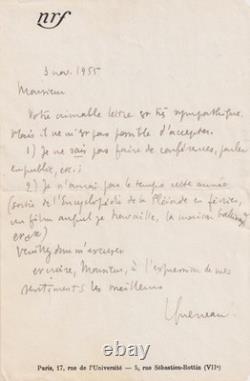 nrf
3 nov. 1955
Monsieur
Votre aimable lettre est très sympathique.
Mais il ne m'est pas possible d'accepter.
1) Je ne sais pas faire de conférences, parler
en public, etc;
2) Je n'aurai pas le temps cette année
(sortie de l'Encyclopédie de la Pléiade en février,
un film auquel je travaille, la maison
etc)
Veuillez donc m'excuser
et croire, Monsieur, à l'expression de mes
sentiments les meilleurs
Queneau
Paris, 17, rue de l'Université — 5, rue Sébastien-Bottin (VIIe)